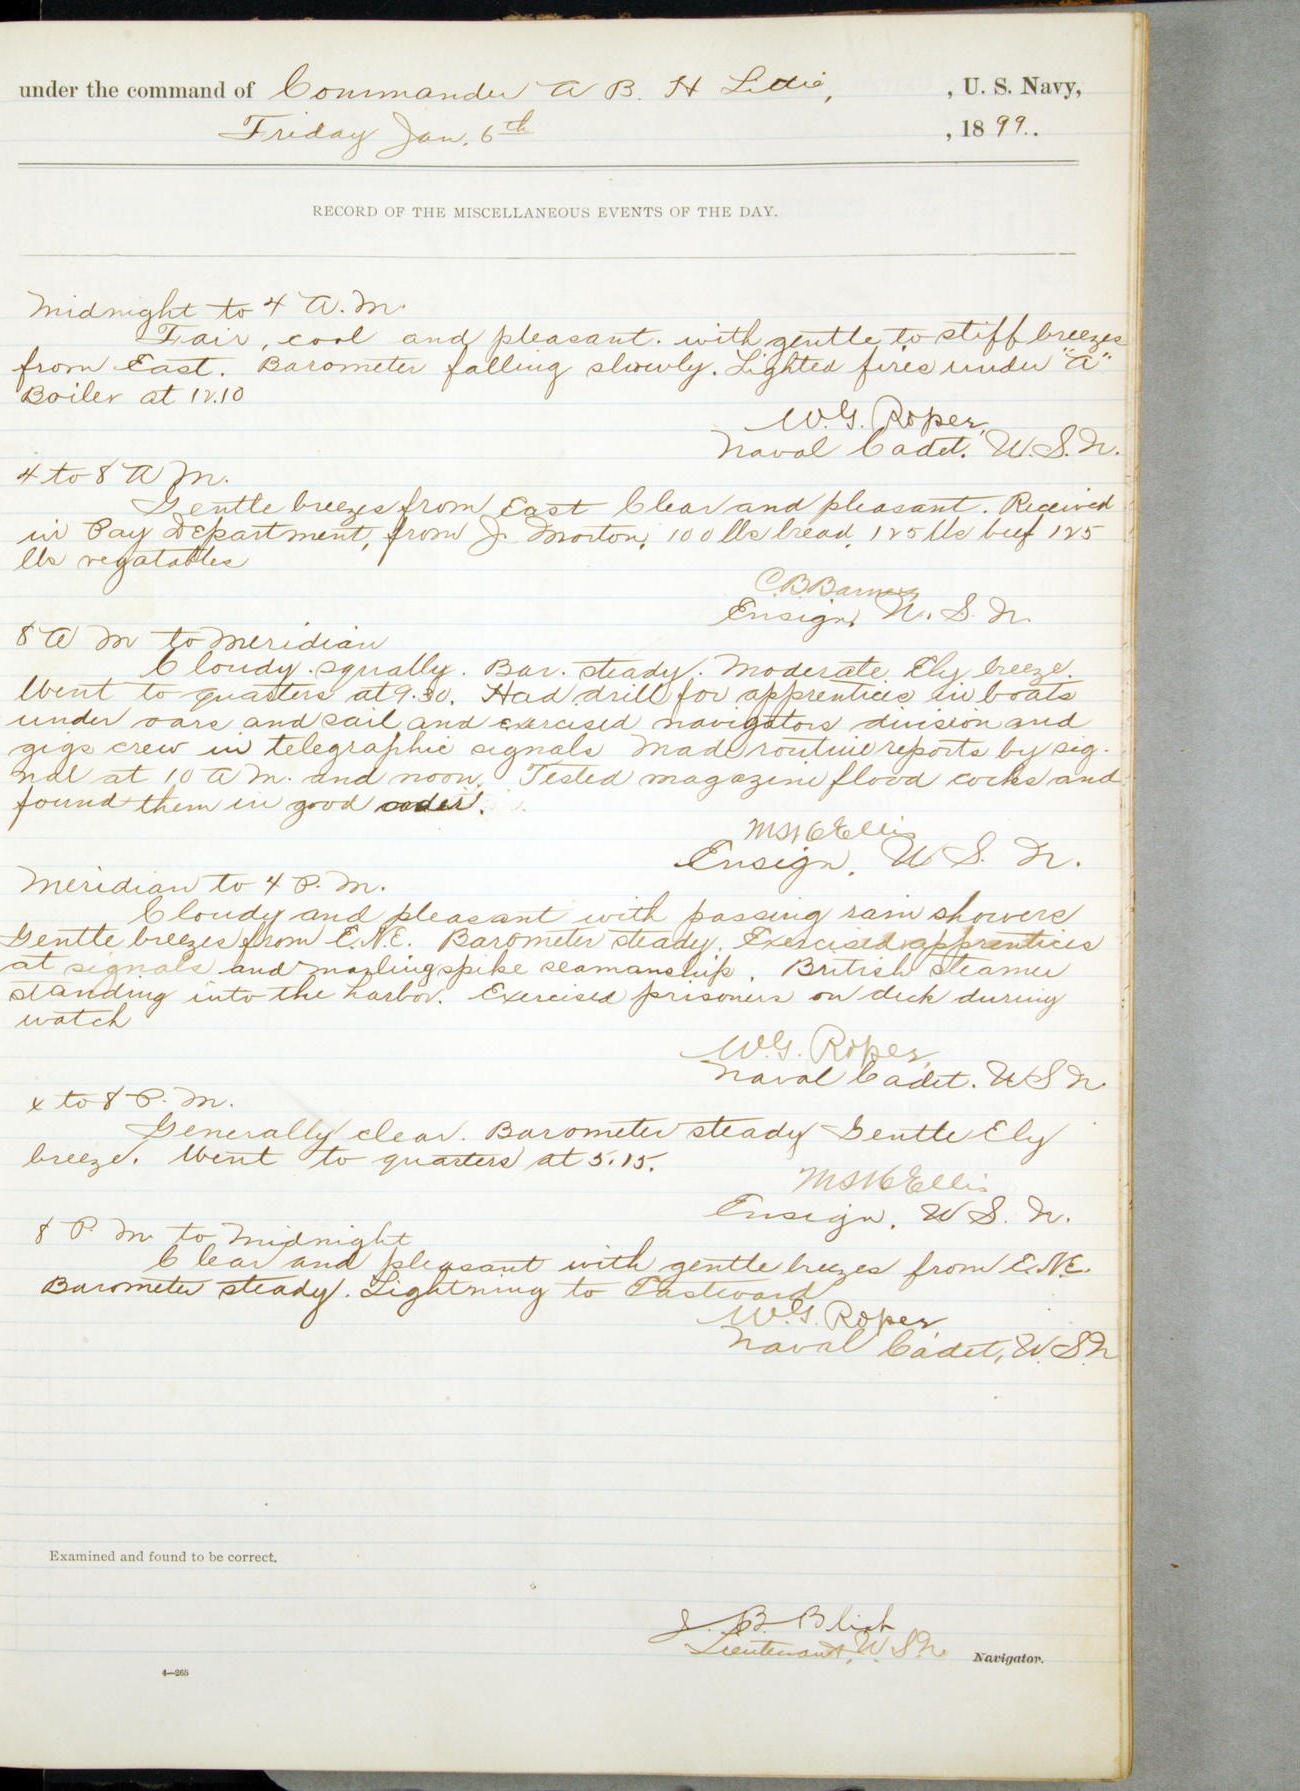 under the command of Commander A B. H Lillie, , U. S. Navy,
Friday Jan. 6th , 1899.
RECORD OF THE MISCELLANEOUS EVENTS OF THE DAY.
Midnight to 4 A. M.
Fair, cool and pleasant. with gentle to stiff breezes
from East. Barometer falling slowly. Lighted fires under "A"
Boiler at 12.10
W. G. Roper,
Naval Cadet. U. S. N.
4 to 8 A M.
Gentle breezes from East Clear and pleasant. Received
in Pay Department, from J. Morton, 100 lbs bread, 125 lbs beef 125
lbs vegatables
C. B. Barnes
Ensign, U. S. N.
8 A M to Meridian
Cloudy. squally. Bar. steady. Moderate Ely breeze.
Went to quarters at 9.30. Had drill for apprentices in boats
under oars and sail and exercised navigators division and
gigs crew in telegraphic signals Made routine reports by sig-
nal at 10 A M. and noon. Tested magazine flood cocks and
found them in good order.
Ellis
Ensign, U S. N.
Meridian to 4 P. M.
Cloudy and pleasant with passing rain showers
Gentle breezes from E.N.E. Barometer steady. Exercised apprentices
at signals and marlingspike seamanship. British steamer
standing into the harbor. Exercised prisoners on deck during
watch
W. G. Roper,
Naval Cadet. U S N.
4 to 8 P. M.
Generally clear. Barometer steady Gentle Ely
breeze. Went to quarters at 5.15.
Ellis
Ensign, U S. N.
8 P. M. to Midnight
Clear and pleasant with gentle breezes from E.N.E.
Barometer steady. Lightning to Eastward
W. G. Roper,
Naval Cadet, U. S. N
Examined and found to be correct.
J. B. Blish
Lieutenant, U. S. N. Navigator.
4—265